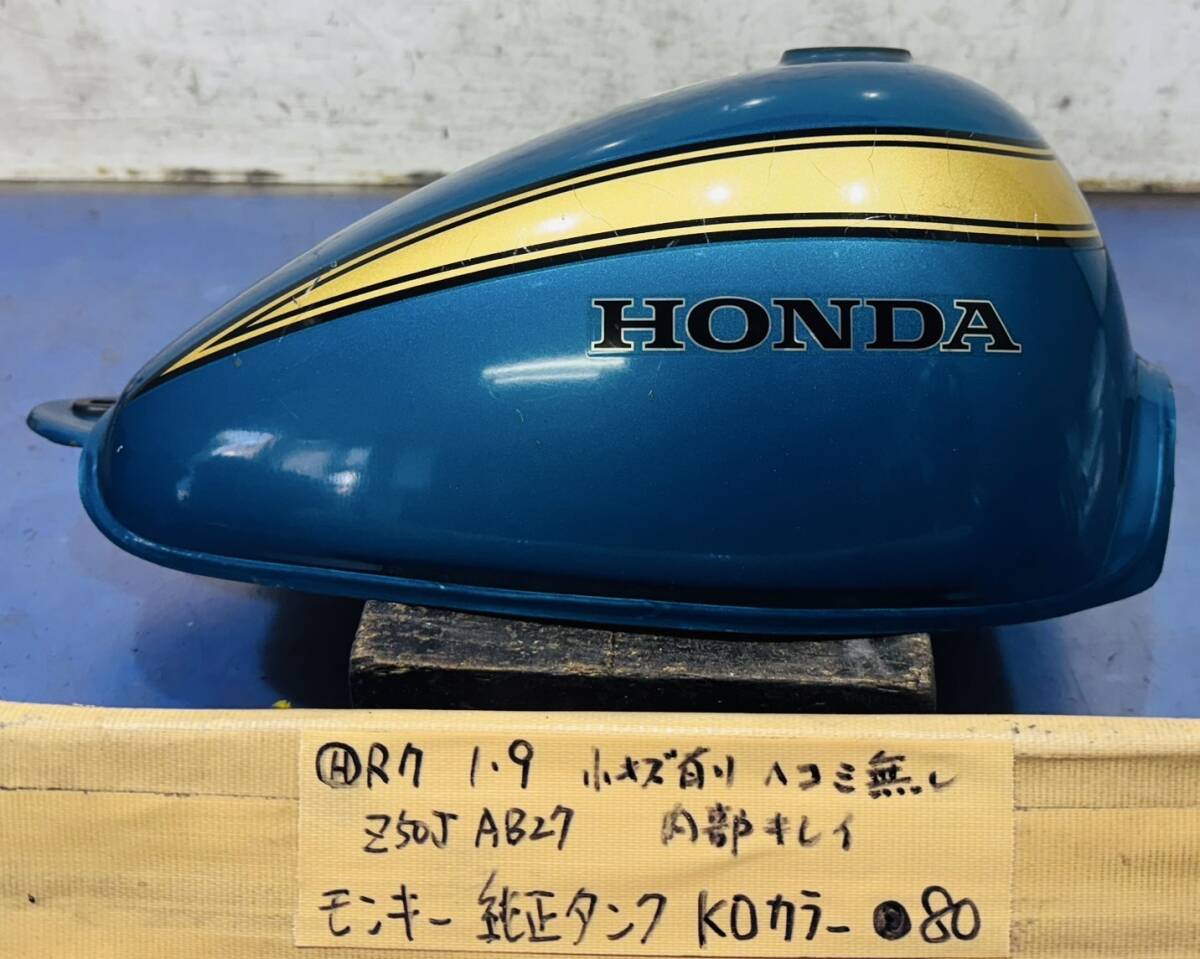 HONDA
ⒽR7 1.9 小キズ有り ヘコミ無し
Z50J AB27 内部キレイ
モンキー 純正タンク K0カラー ●80